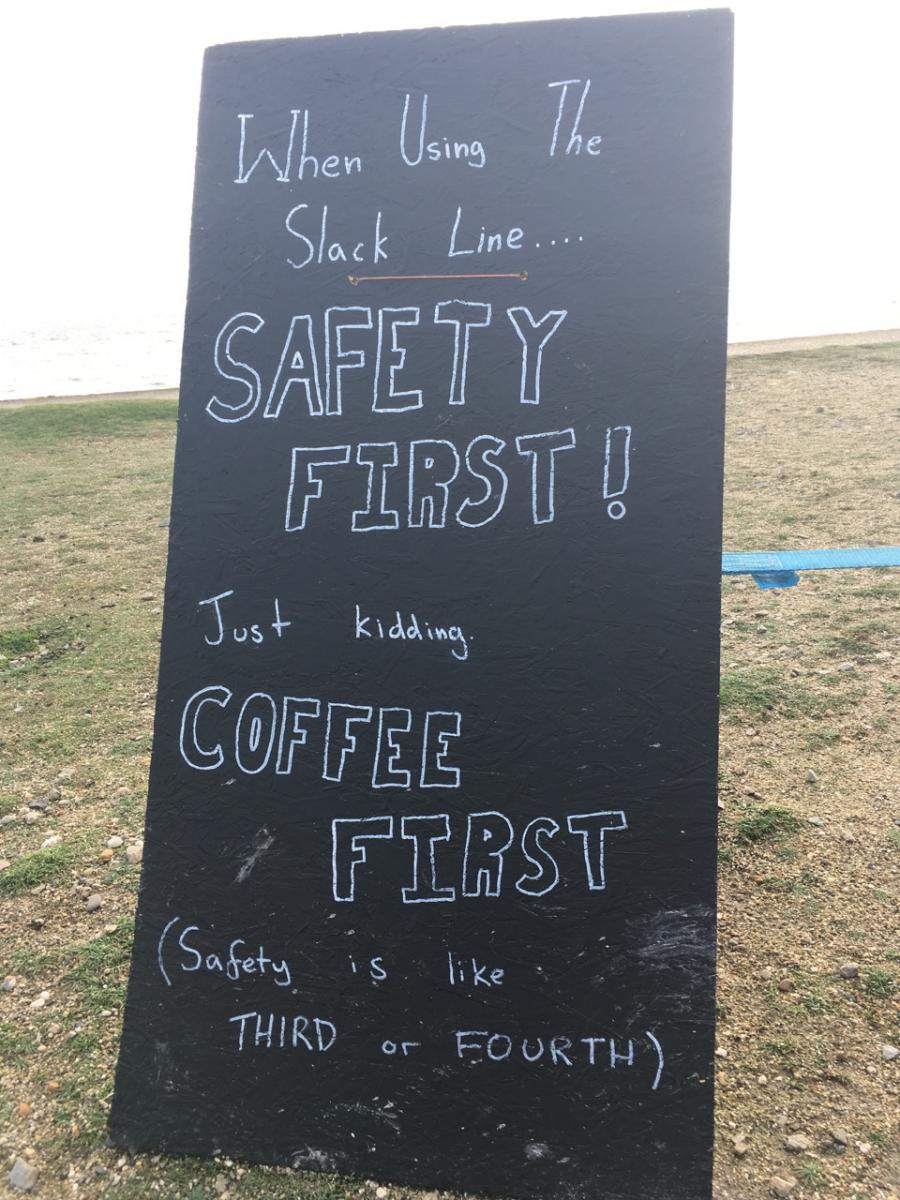 When Using The
Slack Line....
SAFETY
FIRST!
Just kidding.
COFFEE
FIRST
(Safety is like
THIRD or FOURTH)